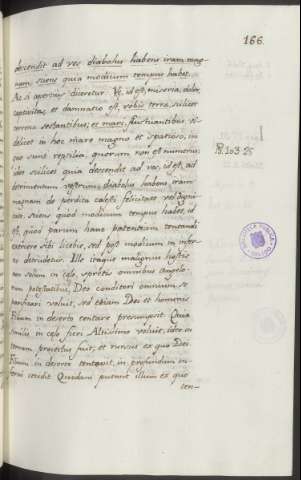 166.
descendit ad vos diabolus habens iram mag-
nam, sciens quia modicum tempus habet.
Ac si apertius diceretur. Væ, id est, miseria, dolor,
et damnatio est, vobis terra, scilicet
terrena sectantibus; et mari, fluctuantibus vi-
delicet in hoc mari magno et spatioso, in
quo sunt reptilia, quorum non est numerus;
scilicet quia descendit ad vos, id est, ad
vestrum diabolus habens iram
magnam de perdita cælesti felicitate
sciens quod modicum tempus habet, id
est, quod parum hanc potestatem tentandi
sibi licebit, sed post modicum in infer-
no detrudetur. Ille itaque malignus hostis
non solum in cælo, spretis omnibus angelo-
rum potestatibus, Deo conditori omnium se
voluit, sed etiam Dei et hominis
Filium in deserto tentare præsumpsit. Quia
similis in cælo fieri Altissimo voluit, ideo in
terram projectus fuit; et rursus ex quo Dei
Filium in deserto tentavit, in profundum in-
ferni cecidit. Quidam putant illum ex quo
ten-
Ps. 103. 25